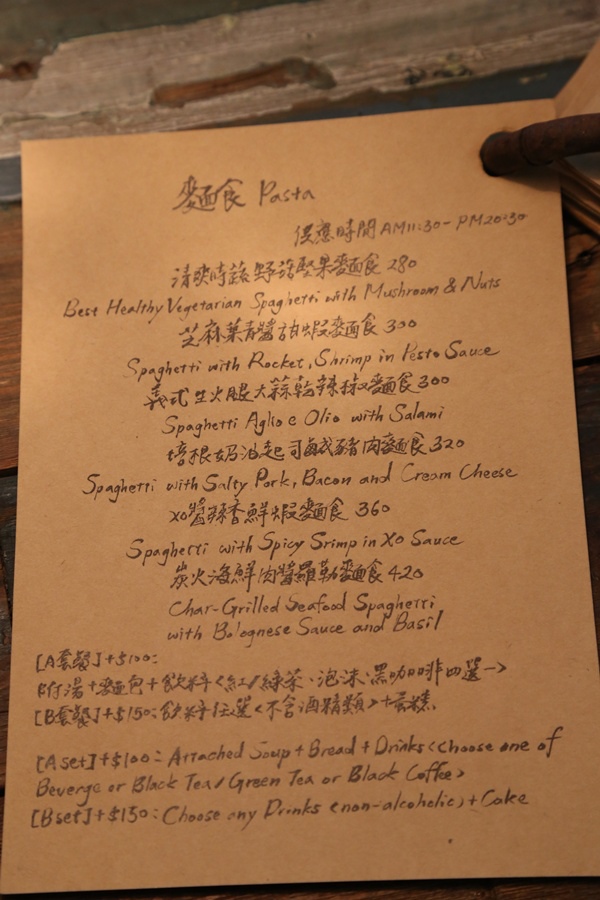 麵食 Pasta
供應時間 AM11:30- PM20:30
清爽時蔬野菇堅果麵食 280
Best Healthy Vegetarian Spaghetti with Mushroom & Nuts
芝麻葉青醬甜蝦麵食 300
Spaghetti with Rocket, Shrimp in Pesto Sauce
義式生火腿大蒜乾辣椒麵食 300
Spaghetti Aglio e Olio with Salami
培根奶油起司鹹豬肉麵食 320
Spaghetti with Salty Pork, Bacon and Cream Cheese
XO醬辣香鮮蝦麵食 360
Spaghetti with Spicy Srimp in XO Sauce
炭火海鮮肉醬羅勒麵食 420
Char-Grilled Seafood Spaghetti
with Bolognese Sauce and Basil
[A套餐]+$100:
附湯+麵包+飲料<紅/綠茶、泡沫、黑咖啡四選一>
[B套餐]+$150:飲料任選<不含酒精類>+蛋糕.
[A set]+$100: Attached Soup + Bread + Drinks <Choose one of
Beverge or Black Tea/Green Tea or Black Coffee>
[B set]+$150: Choose any Drinks <non-alcoholic>+ Cake